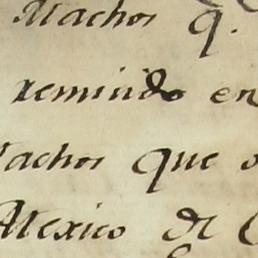 Machos q.
remindo en
Machos que
Mexico de